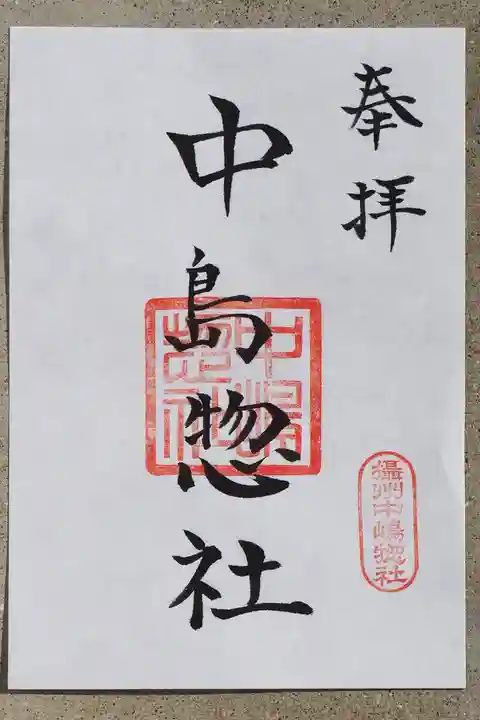 奉拝
中島惣社
中嶋惣社
攝州中嶋惣社